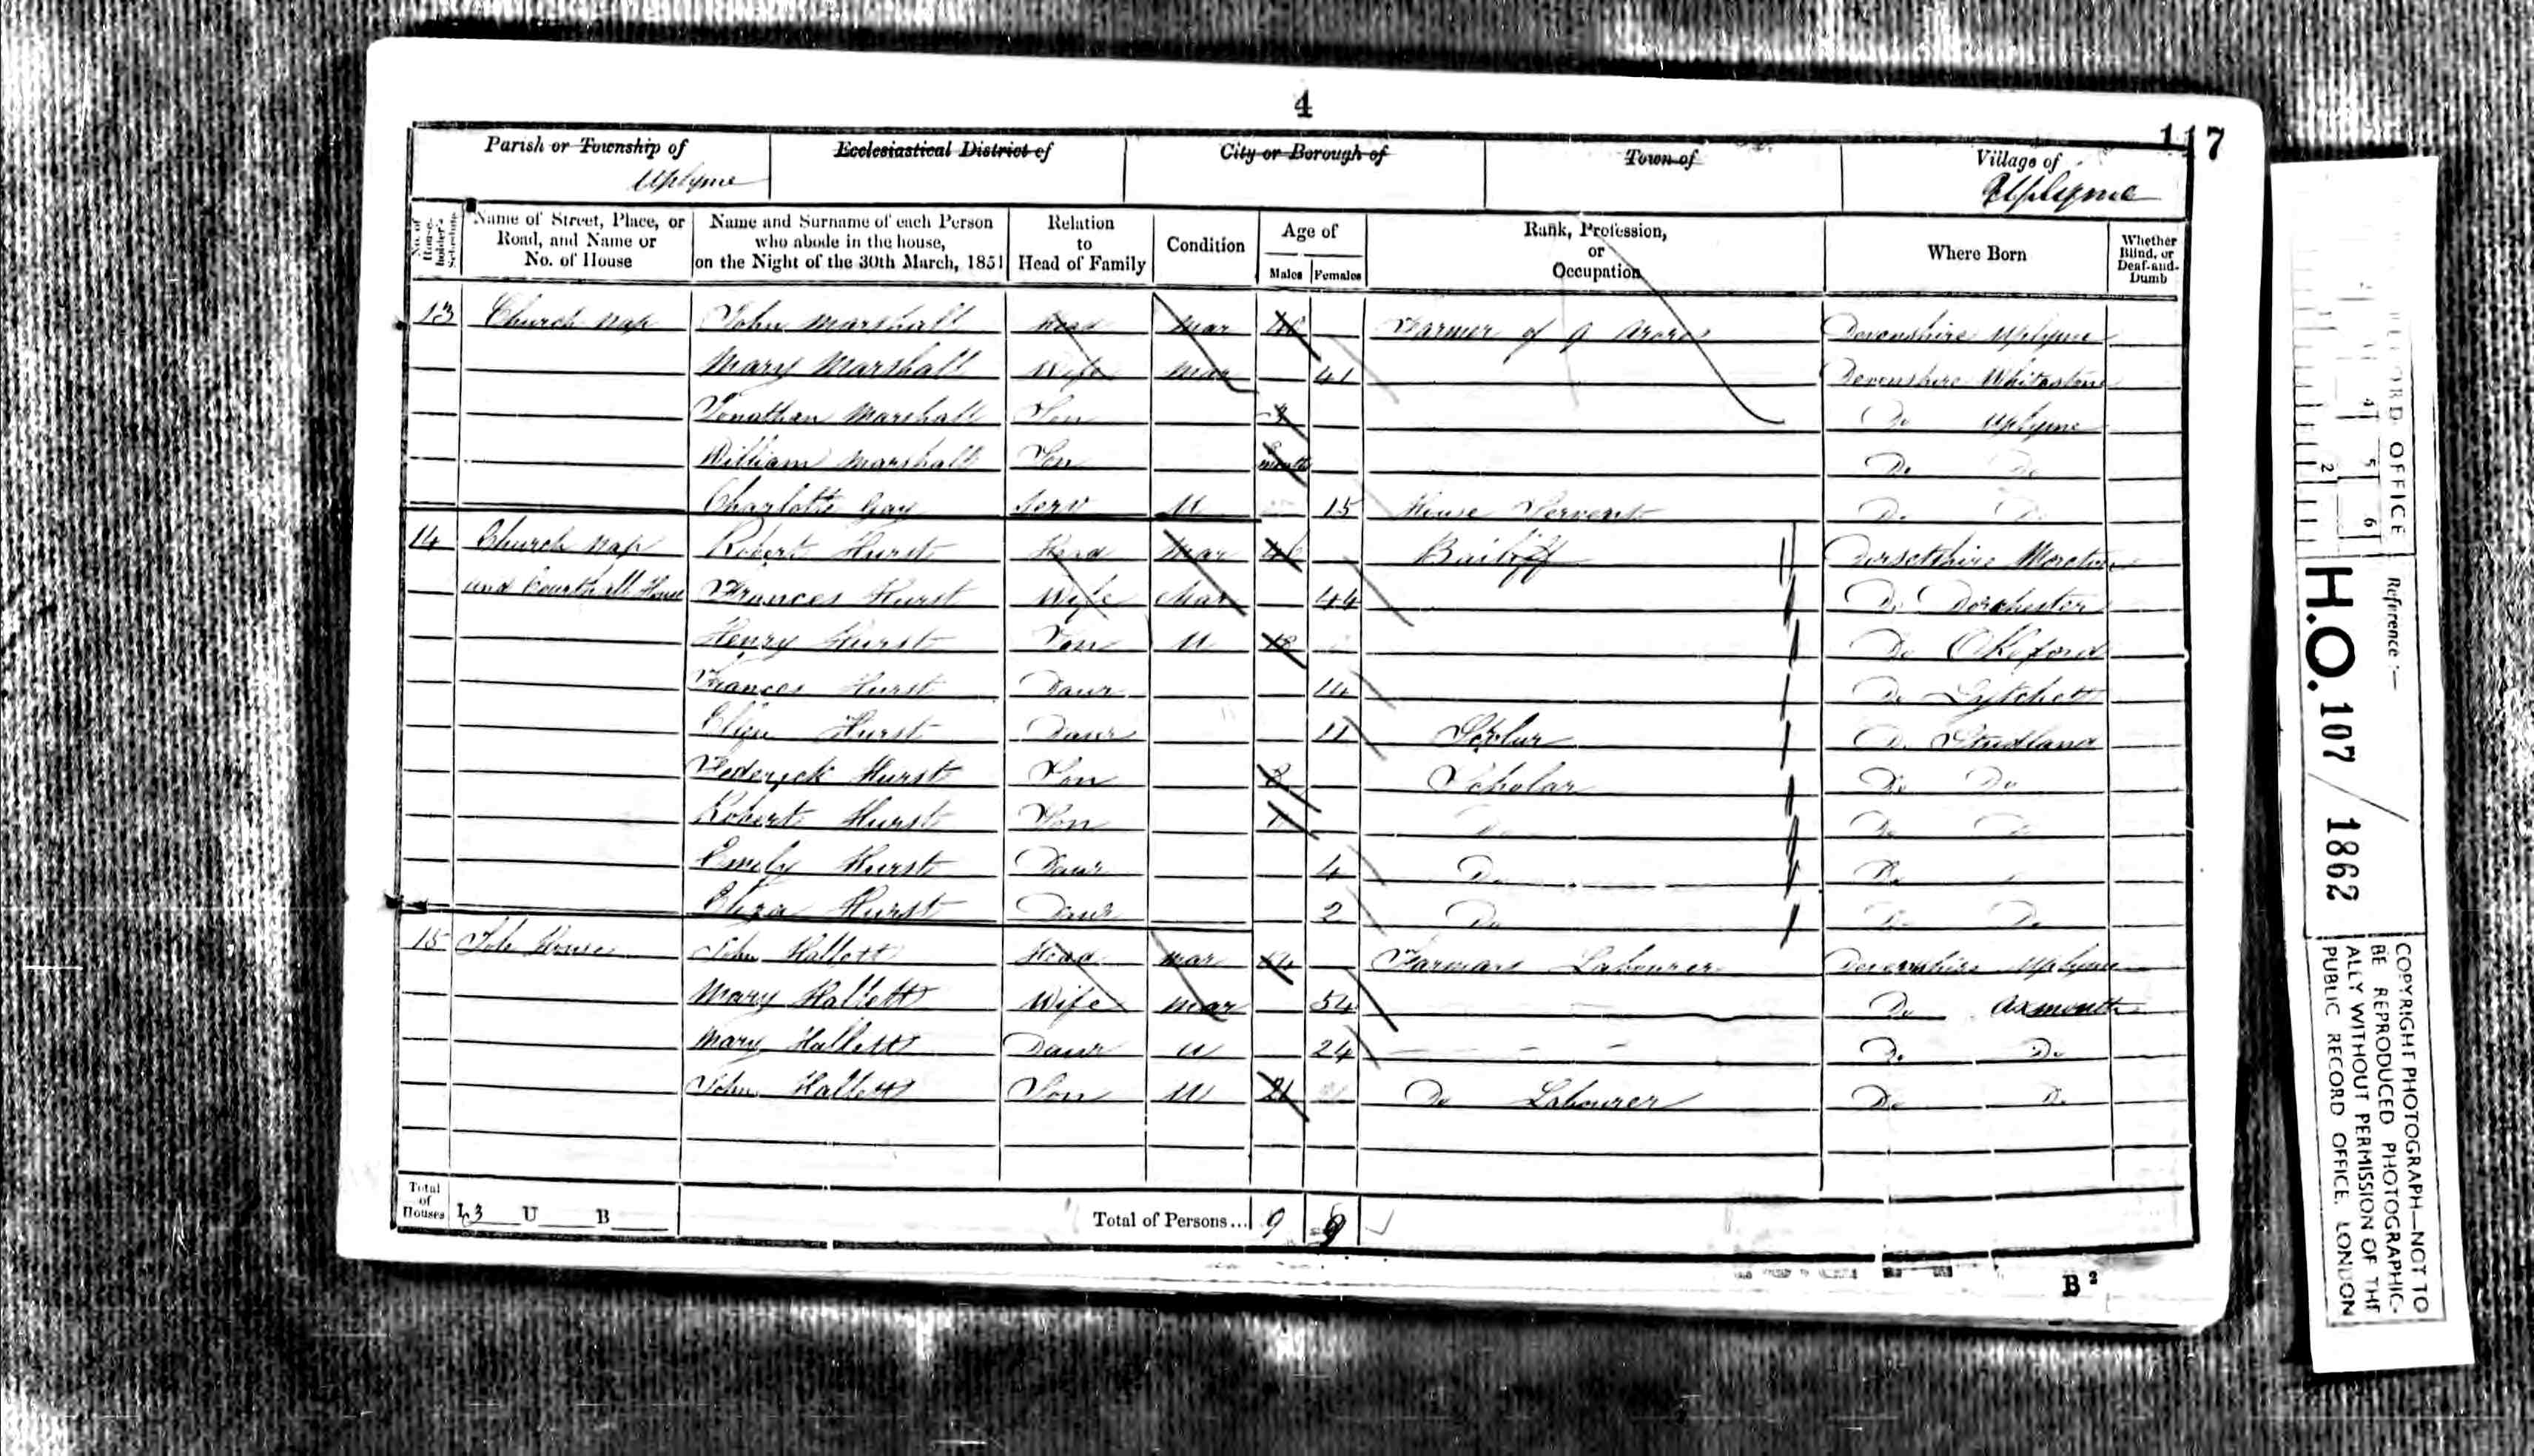 4
117
Parish or Township of
Uplyme
Ecclesiastical District of
City or Borough of
Town of
Village of
Uplyme
No. of House-holder's Schedule
Name of Street, Place, or Road, and Name or No. of House
Name and Surname of each Person who abode in the house, on the Night of the 30th March, 1851
Relation to Head of Family
Condition
Age of
Males Females
Rank, Profession, or Occupation
Where Born
Whether Blind, or Deaf-and-Dumb
13 Church John Marshall Head Mar Farmer of 9 Acres Devonshire Uplyme
Mary Marshall Wife Mar 41 Devonshire Whitestone
Jonathan Marshall Son Do Uplyme
William Marshall Son months Do Do
Charlotte Gay Serv U 15 House Servant Do Do
14 Church Robert Hurst Head Mar 46 Bailiff Dorsetshire Moreton
and House Frances Hurst Wife Mar 44 Do Dorchester
Henry Hurst Son U 18 Do Okeford
Frances Hurst Daur 14 Do Lytchett
Hurst Daur 11 Do Studland
Federick Hurst Son 8 Scholar Do Do
Robert Hurst Son Do Do Do
Emily Hurst Daur 4 Do Do
Eliza Hurst Daur 2 Do Do Do
15 House John Hallett Head Mar Farmars Labourer Devonshire Uplyme
Mary Hallett Wife Mar 54 Do Axmouth
Mary Hallett Daur U 24 Do Do
John Hallett Son U 21 Do Labourer Do Do
Total of Houses I 3 U B Total of Persons... 9 9
B 2
RECORD OFFICE
Reference :-
H.O. 107 / 1862
COPYRIGHT PHOTOGRAPH—NOT TO
BE REPRODUCED PHOTOGRAPHIC-
ALLY WITHOUT PERMISSION OF THE
PUBLIC RECORD OFFICE, LONDON